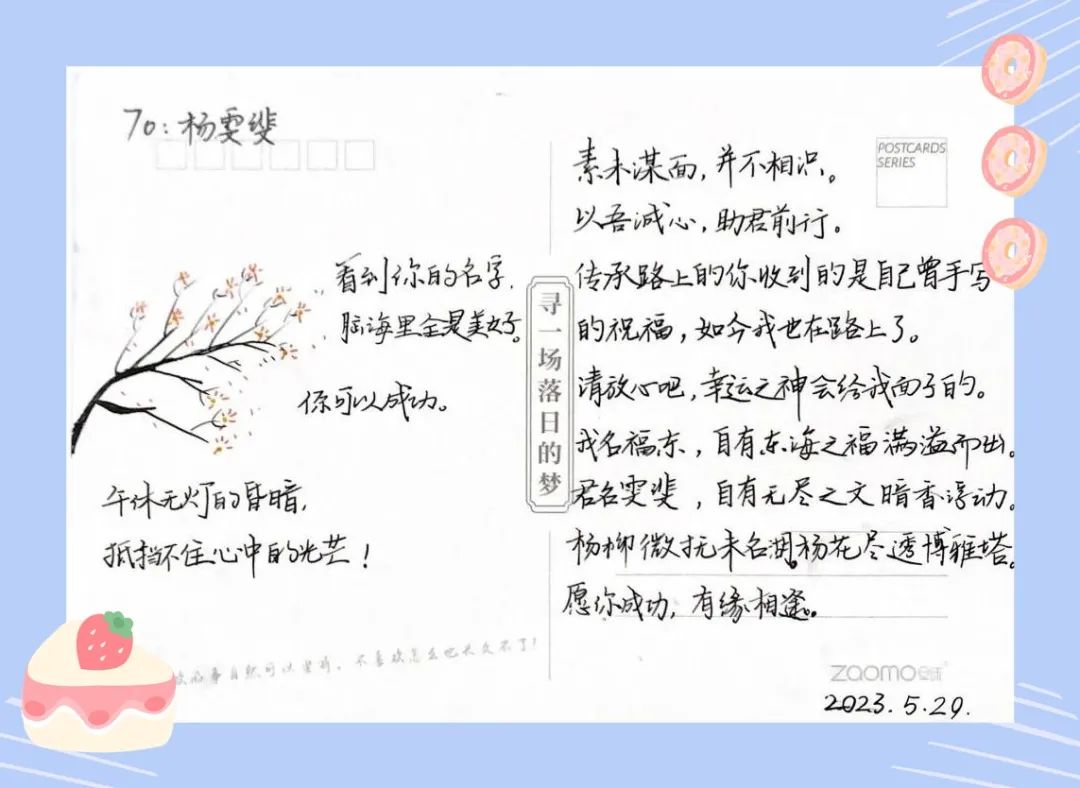 To：杨雯斐
看到你的名字，
脑海里全是美好。
你可以成功。
午休无灯的昏暗，
抵挡不住心中的光芒！
自然可以
不喜欢怎么也长久不了！
寻一场落日的梦
POSTCARDS
SERIES
素未谋面，并不相识。
以吾诚心，助君前行。
传承路上的你收到的是自己曾手写
的祝福，如今我也在路上了。
请放心吧，幸运之神会给我面子的。
我名福东，自有东海之福满溢而出。
君名雯斐，自有无尽之文暗香浮动。
杨柳微抚未名湖。杨花尽透博雅塔。
愿你成功，有缘相逢。
zaomo
2023.5.29.